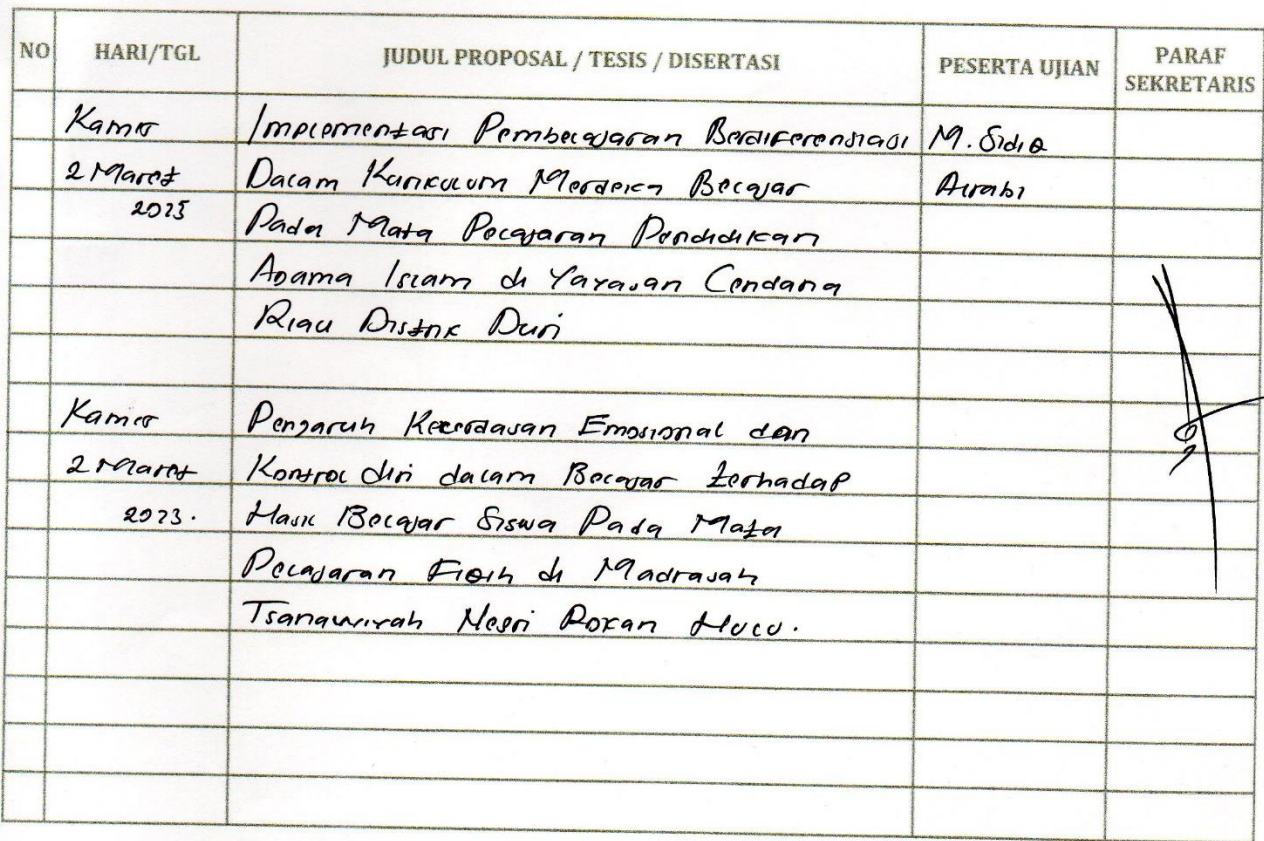 NO HARI/TGL JUDUL PROPOSAL / TESIS / DISERTASI PESERTA UJIAN PARAF SEKRETARIS
Kamis Implementasi Pembelajaran Berdiferensiasi M. Sidiq
2 Maret Dalam Kurikulum Merdeka Belajar Alrabi
2023 Pada Mata Pelajaran Pendidikan
Agama Islam di Yayasan Cendana
Riau Distrik Duri
Kamis Pengaruh Kecerdasan Emosional dan
2 Maret Kontrol diri dalam Belajar terhadap
2023. Hasil Belajar Siswa Pada Mata
Pelajaran Fiqih di Madrasah
Tsanawiyah Negri Rokan Hulu.